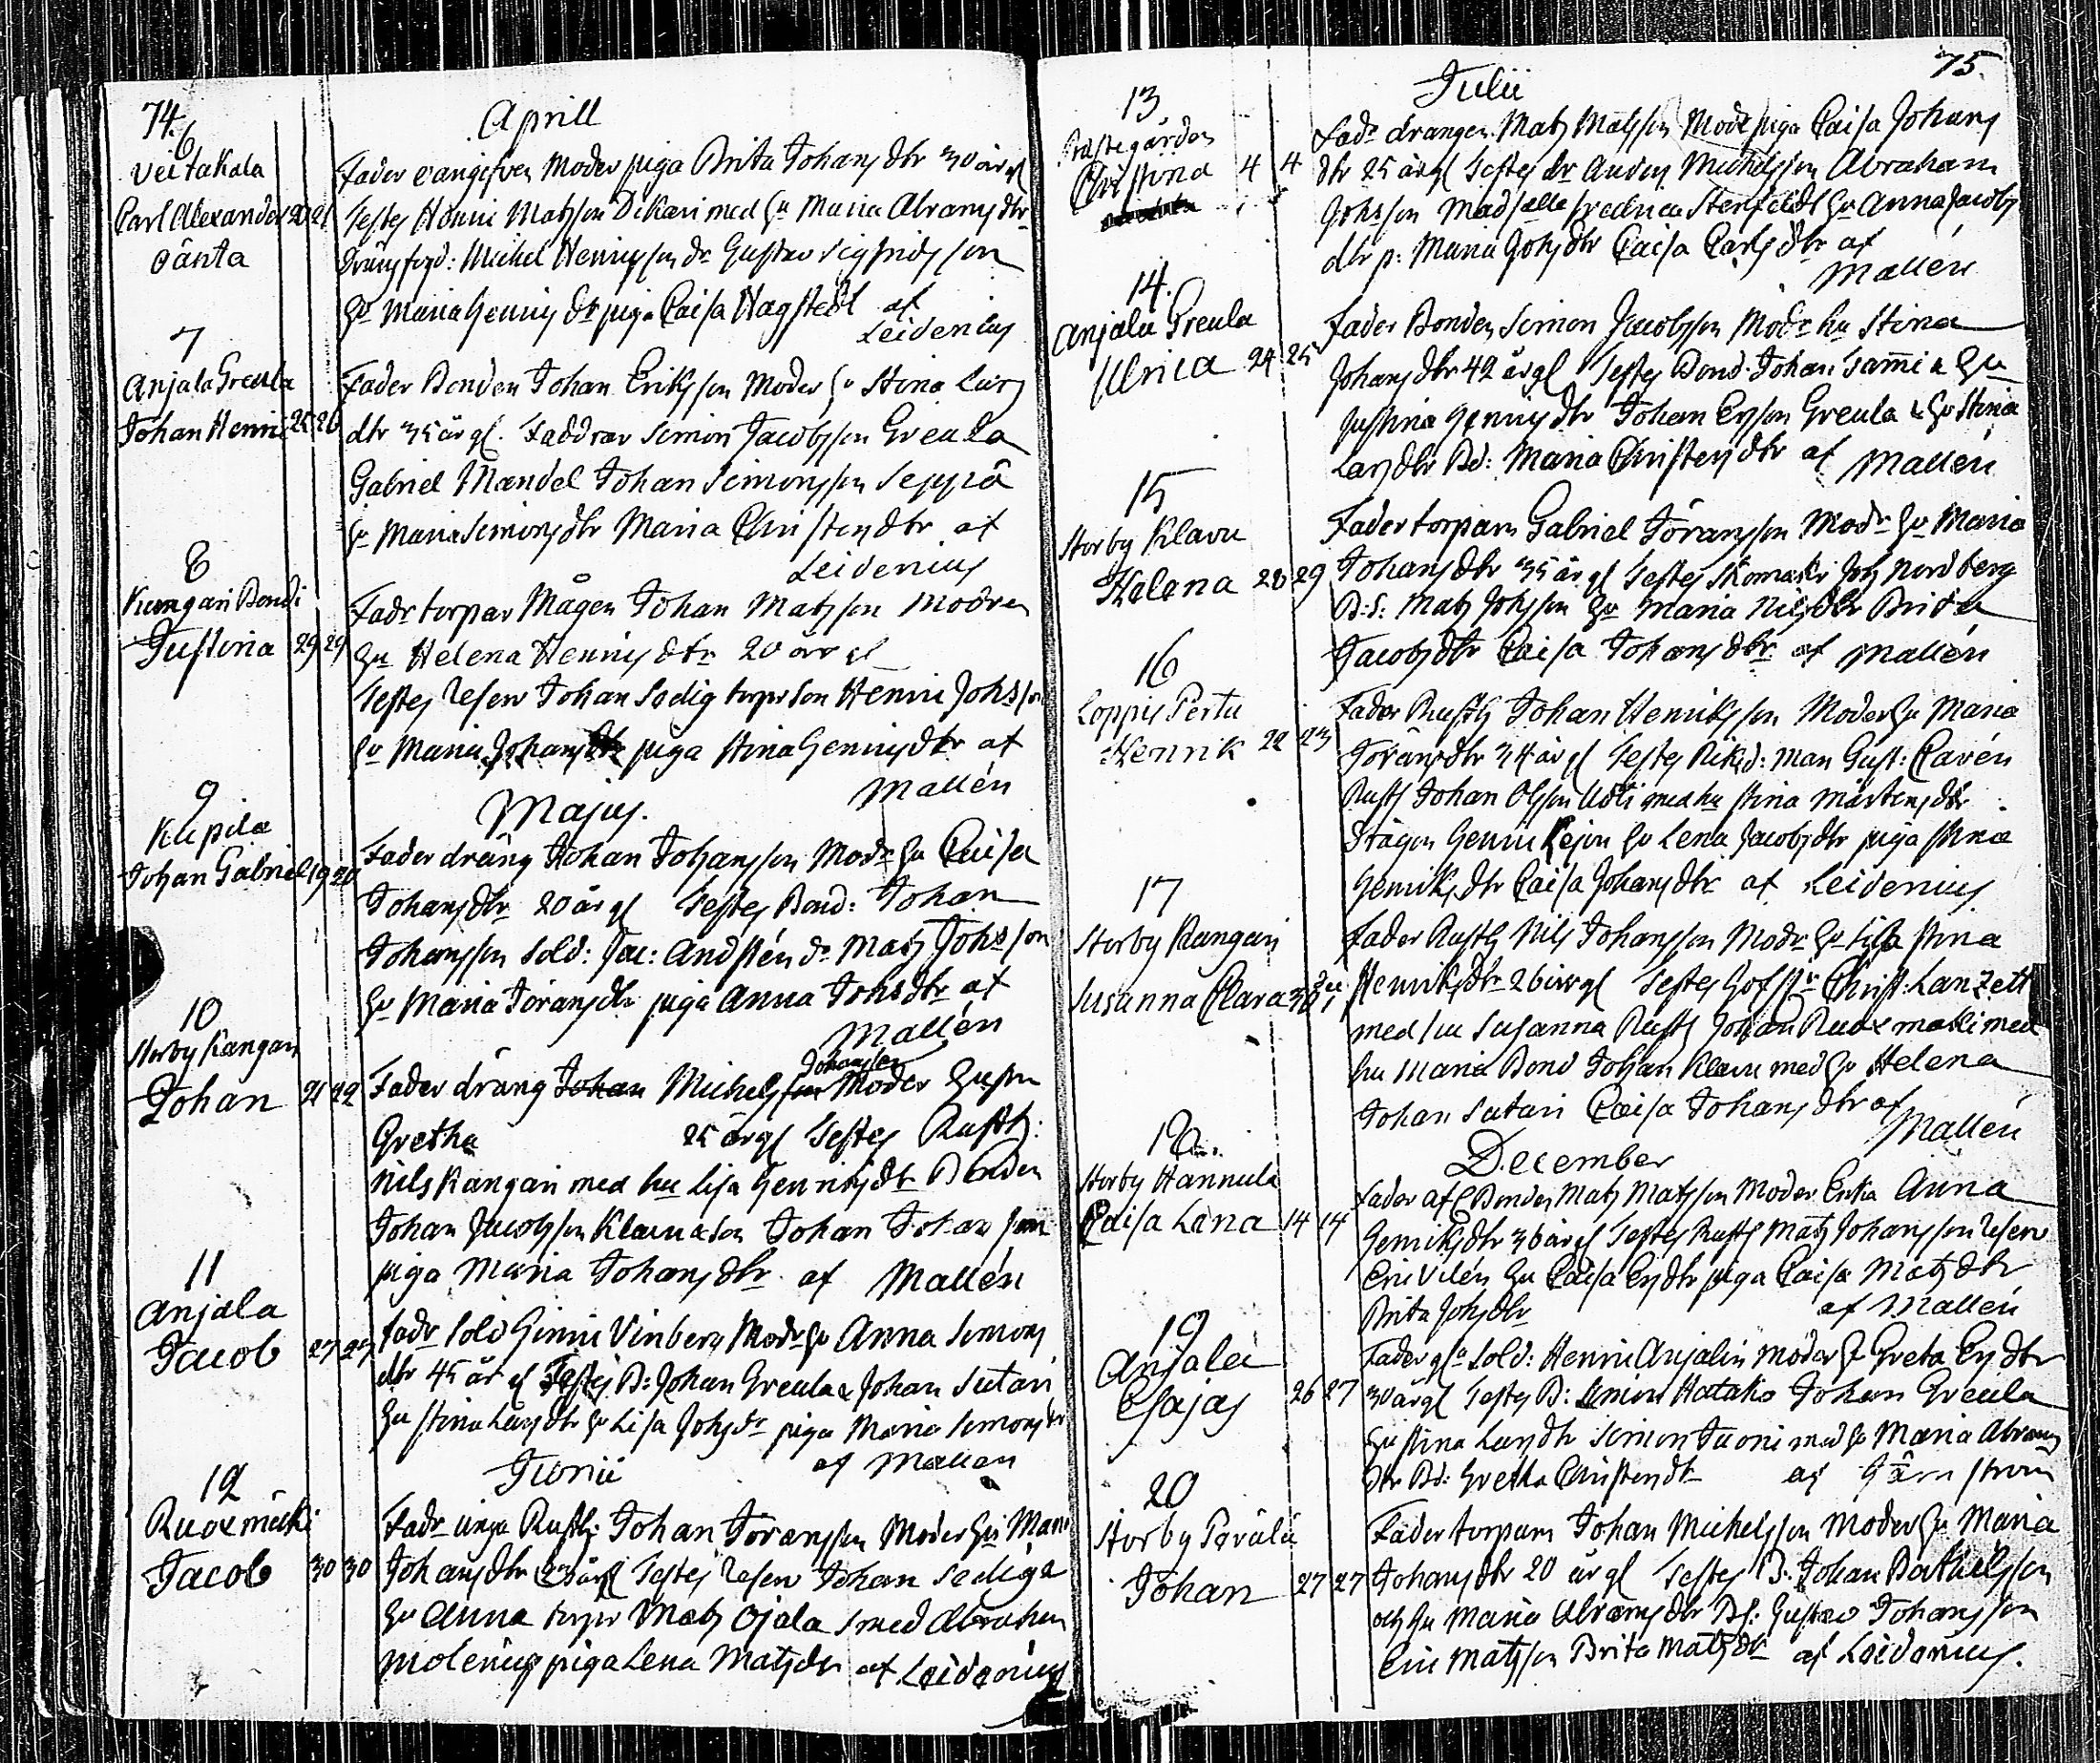 74.
Aprill
6
Veitakala
Carl Alexander 20 21
oänta
Fader oangifven Moder piga Brita Johansdtr 30 år gl
Testes Henric Matsson Dikari med hu Maria Abramsdtr
Michel Henricsson dr Gustav Sigfridsson
hu Maria Henricsdr piga Caisa Hagstedt af
Leidenius
7
Anjala Greula
Johan Henric 25 26
Fader Bonden Johan Eriksson Moder hu Stina Lars
dtr 35 år gl. Faddrar Simon Jacobsson Greula
Gabriel Mandel Johan Simonsson Seppä
hu Maria Simonsdtr Maria Christersdtr af
Leidenius
8
Kungari Bondi
Justina 29 29
Fadr torpar Mågen Johan Matsson modren
hu Helena Henricsdtr 20 år gl
Testes Reserv Johan Sodig torpar son Henric Johsson
hu Maria Johansdtr piga Stina Henricsdtr af
Mallén
Majus.
9
Kupila
Johan Gabriel 19 20
Fader dräng Johan Johansson Modr hu Caisa
Johansdtr 20 år gl Testes Bond: Johan
Johansson Sold: Jac: Andstén dr Mats Johsson
hu Maria Göransdtr piga Anna Johsdtr af
Mallén
10
Storby Kangari
Johan 21 22
Fader dräng Johan Michelsson Johansson Moder Hustru
Gretha 25 år gl Testes Rusth:
Nils Kangari med hu Lisa Henricsdtr Bonden
Johan Jacobsson Klavu & son Johan Johansson
piga Maria Johansdtr af Mallén
11
Anjala
Jacob 27 27
Fadr Sold Henric Vinberg Modr hu Anna Simons
dtr 45 år gl Testes B: Johan Greula & Johan Sutari
hu Stina Larsdtr hu Lisa Johsdr piga Maria Simonsdtr
af Mallén
Junii
12
Ruoxmäki
Jacob 30 30
Fadr unga Rusth: Johan Göransson Moder hu Maria
Johansdtr år gl Testes Reserv Johan Sodiga
hu Anna torpar Mats Ojala smed Abraham
Molenius piga Lena Matsdtr af Leidenius
75.
Julii
13
Prästegården
Christina 4 4
Fadr drängen Mats Matsson Modr piga Caisa Johans
dtr 25 år gl Testes dr Anders Michelsson Abraham
Johsson Madselle Fredrica Sterfeldt hu Anna Jacobs
dtr p: Maria Johsdtr Caisa Carlsdtr af
Mallén
14.
Anjala Greula
Ulrica 24 25
Fader Bonden Simon Jacobsson Modr hu Stina
Johansdtr 42 år gl Testes Bond. Johan Sammi & hu
Justina Henricsdtr Johan Ersson Greula & hu Stina
Larsdtr Bd: Maria Christersdtr af Mallén
15
Storby Klavu
Helena 28 29
Fader torparn Gabriel Göransson Modr hu Maria
Johansdtr 35 år gl Testes Skomakr Joh Nordberg
B.S: Mats Johsson hu Maria Nilsdtr Brita
Jacobsdtr Caisa Johansdtr af Mallén
16
Loppis Pertu
Henrik 22 23
Fader Rusth Johan Henriksson Moder hu Maria
Göransdtr 34 år gl Testes Riksd: man Gust: Cavén
Rusth Johan Olsson Uoti med hu Stina Mårtensdtr
Drägon Henric Rejon hu Lena Jacobsdtr piga Stina
Henriksdtr Caisa Johansdtr af Leidenius
17
Storby Kangari
Susanna Clara 30 31
Fader Rusth Nils Johansson Modr hu Lisa Stina
Henriksdtr 26 år gl Testes Christ: Lanzett
med hu Susanna Rusth Johan Ruoxmäki med
hu Maria Bond Johan Klavu med hu Helena
Johan Sutari Caisa Johansdtr af
Mallén
December
18
Storby Hannula
Caisa Lena 14 14
Fader afl Bonden Mats Matsson Moder Enka Anna
Henriksdtr 36 år gl Testes Rusth Mats Johansson Reserv
Eric Vilén hu Caisa Ersdtr piga Caisa Matsdtr
Brita Johsdtr af Mallén
19
Anjala
Esajas 26 27
Fader Sold: Henric Anjalin moder hu Greta Ersdtr
30 år gl Testes B: Simon Hatako Johan Greula
hu Stina Larsdtr Simon Tuoni med hu Maria Abrams
dtr Bd: Gretha Christersdtr af Gärnström
20
Storby Perälä
Johan 27 27
Fader torparn Johan Michelsson moder hu Maria
Johansdtr 20 år gl Testes B. Johan Bathelsson
och hu Maria Abramsdtr BS: Gustav Johansson
Eric Matsson Brita Matsdtr af Leidenius.